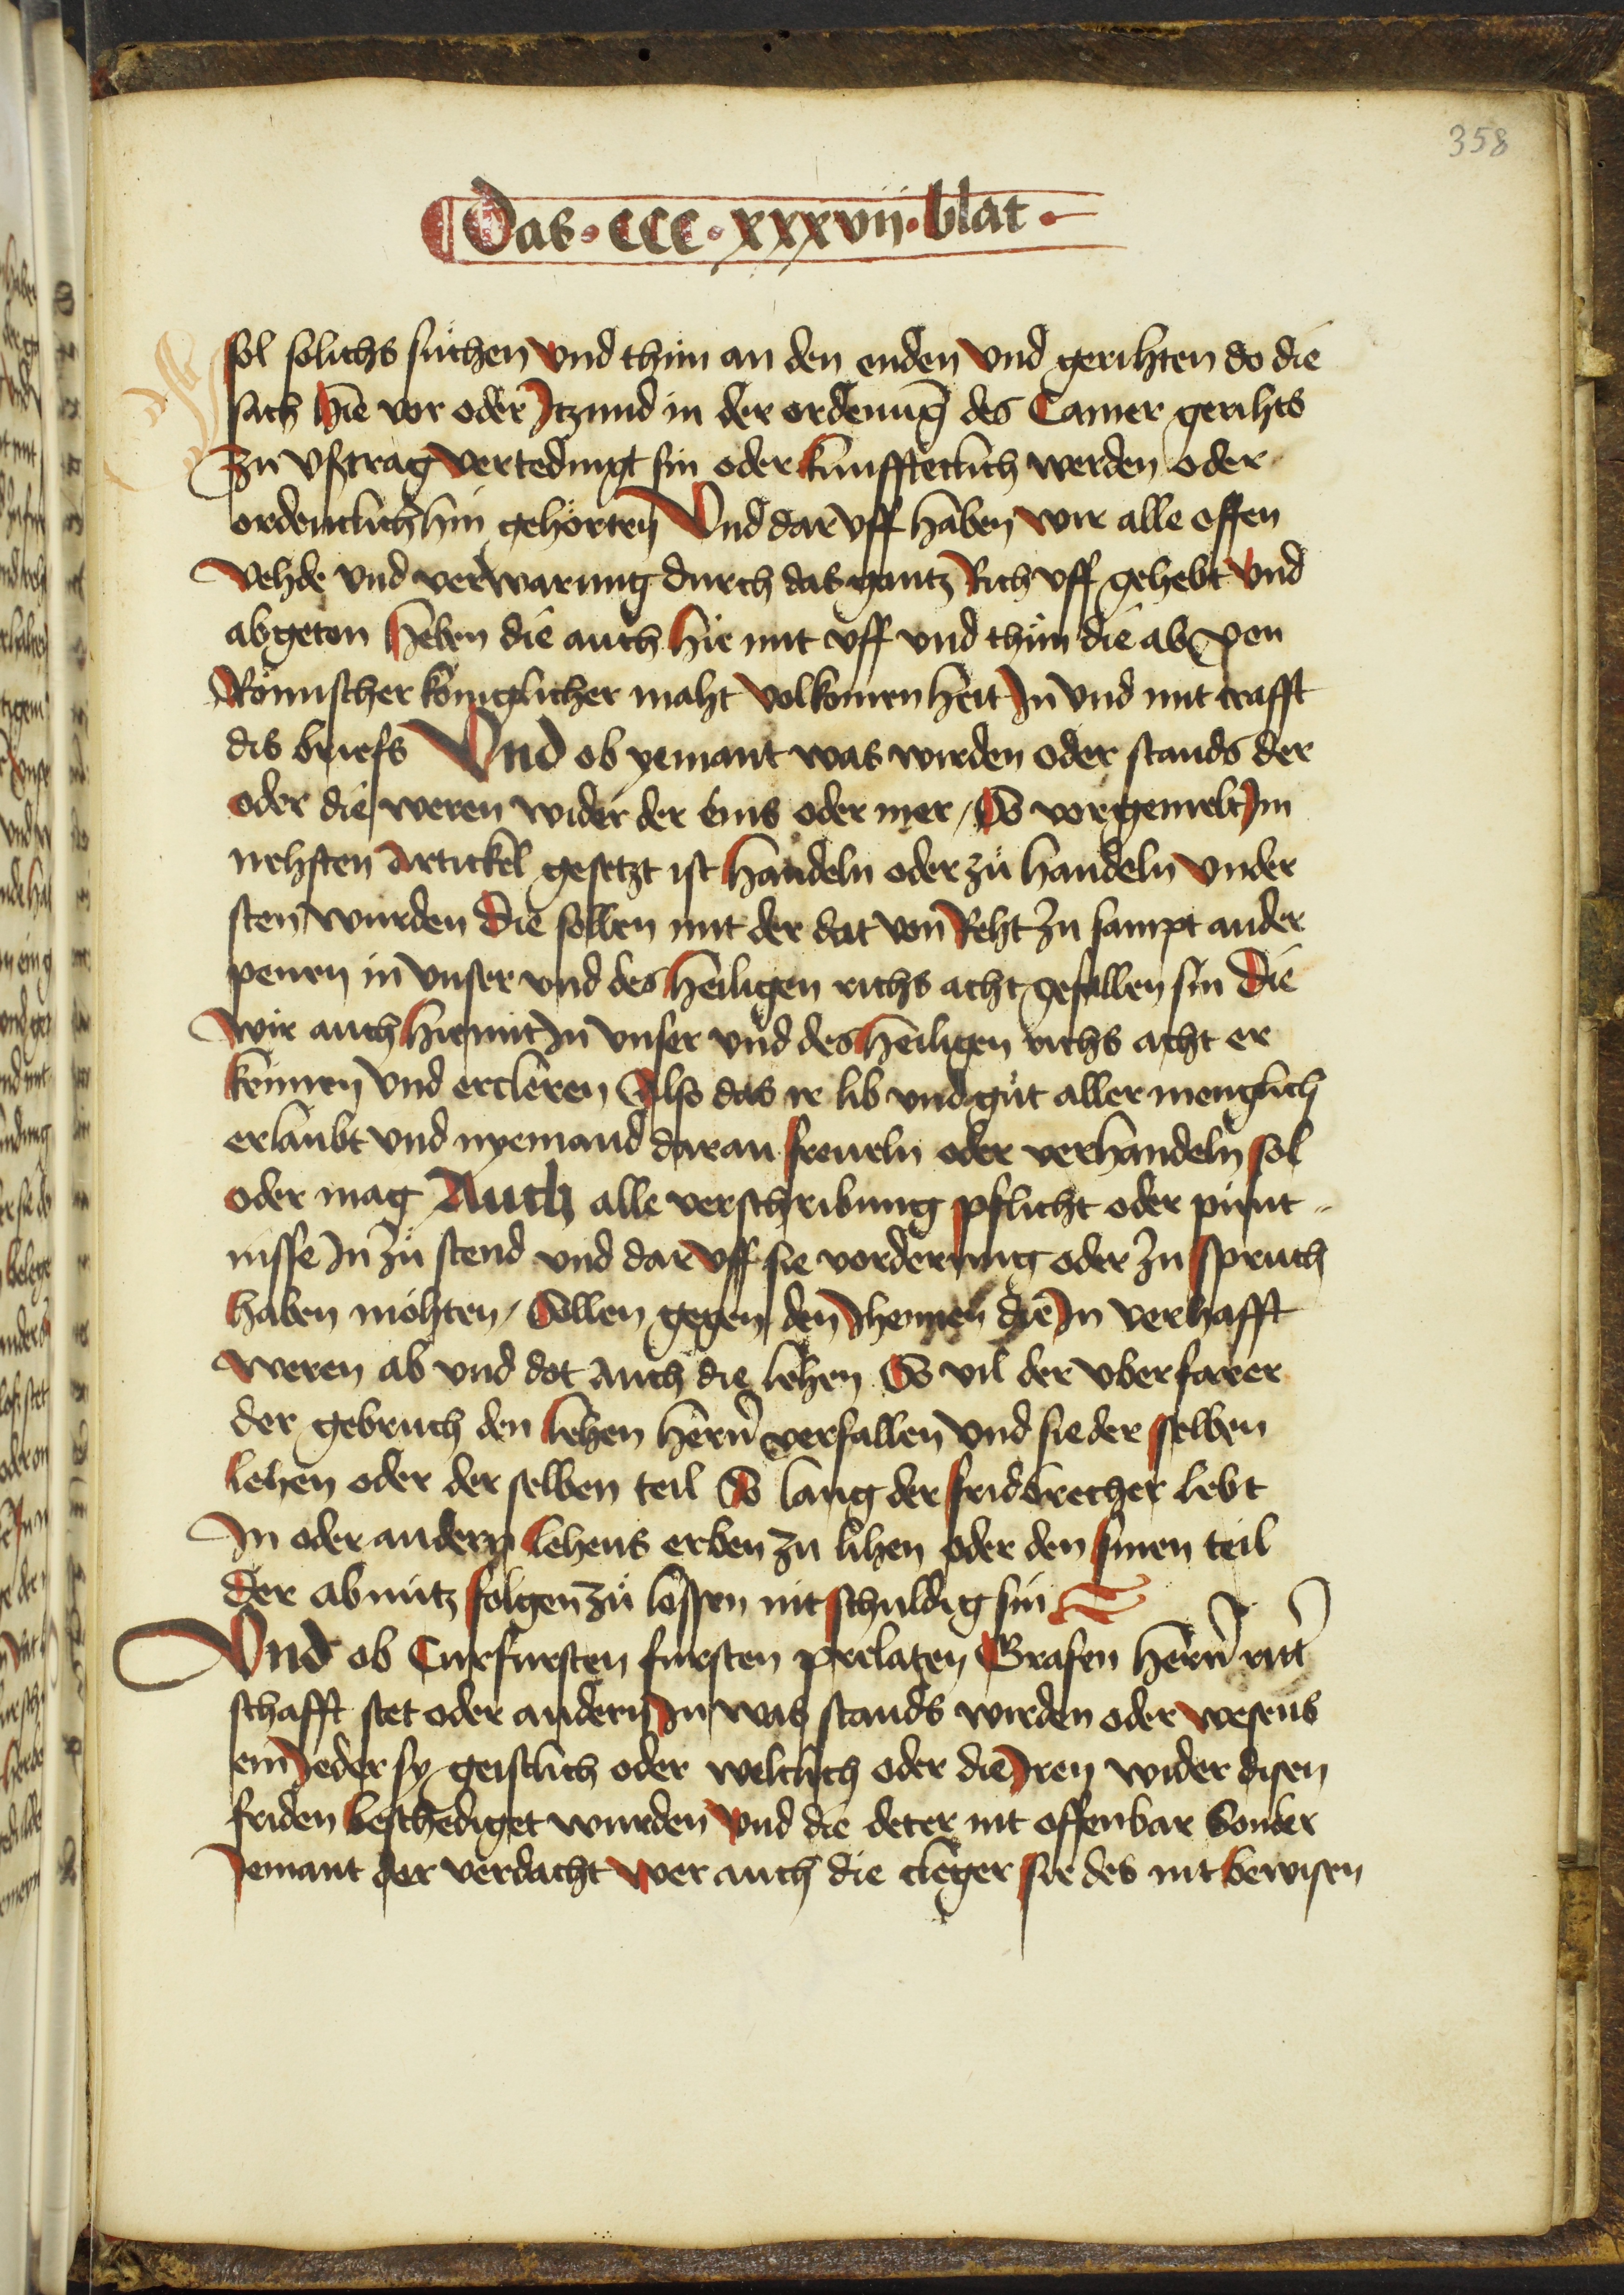 358
Das · ccc · xxxvij · blat ·
sol solichs suchen vnd thun an den enden vnd gerihten do die
sach hie vor oder Itzund in der ordenu̅g des Camer gerihts
zu vstrag vertedingt sin oder kunffteclich werden oder
ordenlich hin gehorten Vnd dar vff haben wir alle offen
Vehde vnd verwarung durch das gantz Rich vff gehebt vnd
abgeton heben die auch hie mit vff vnd thun die ab von
Römischer königlicher maht volkomenheit In vnd mit crafft
dis briefs Vnd ob yemant was wirden oder stands der
oder die weren wider der eins oder mer / So vorgemelt Im
nehsten Artickel gesetzt ist handeln oder zu handeln vnder
sten wurden Die sollen mit der dat von Reht zu sampt ander
penen in vnser vnd des heiligen richs acht gefallen sin Die
wir auch hiemit In vnser vnd des heiligen richs acht er
kennen vnd ercleren Also das ir lib vnd gut aller menglich
erlaubt vnd nyemand daran freueln oder verhandeln sol
oder mag Auch alle verschribung pflicht oder punt
nisse In zu stend vnd dar vff sie vorderung oder zu spruch
haben möhten / Sollen gegen den Jhennen die In verhafft
weren ab vnd dot Auch die lehen So vil der vberfarer
der gebruch den lehen hern̅ verfallen vnd sie der selben
lehen oder der selben teil So lang der fridbrecher lebt
In oder andern lehens erben zu lihen oder den sinen teil
der abnutz folgen zu lossen nit schuldig sin
Vnd ob Curfursten fursten prelaten Grafen hern̅ ritt̅
schafft stet oder andern In was stands wirden oder wesens
ein Jeder sy geistlich oder weltlich oder die Iren wider disen
friden beschediget wurden vnd die deter nit offenbar Sonder
Jemant der verdacht wer auch die cleger sie des nit bewisen